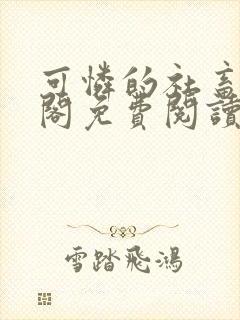 可憐的社畜
閣免費閱讀
雪踏飛鴻